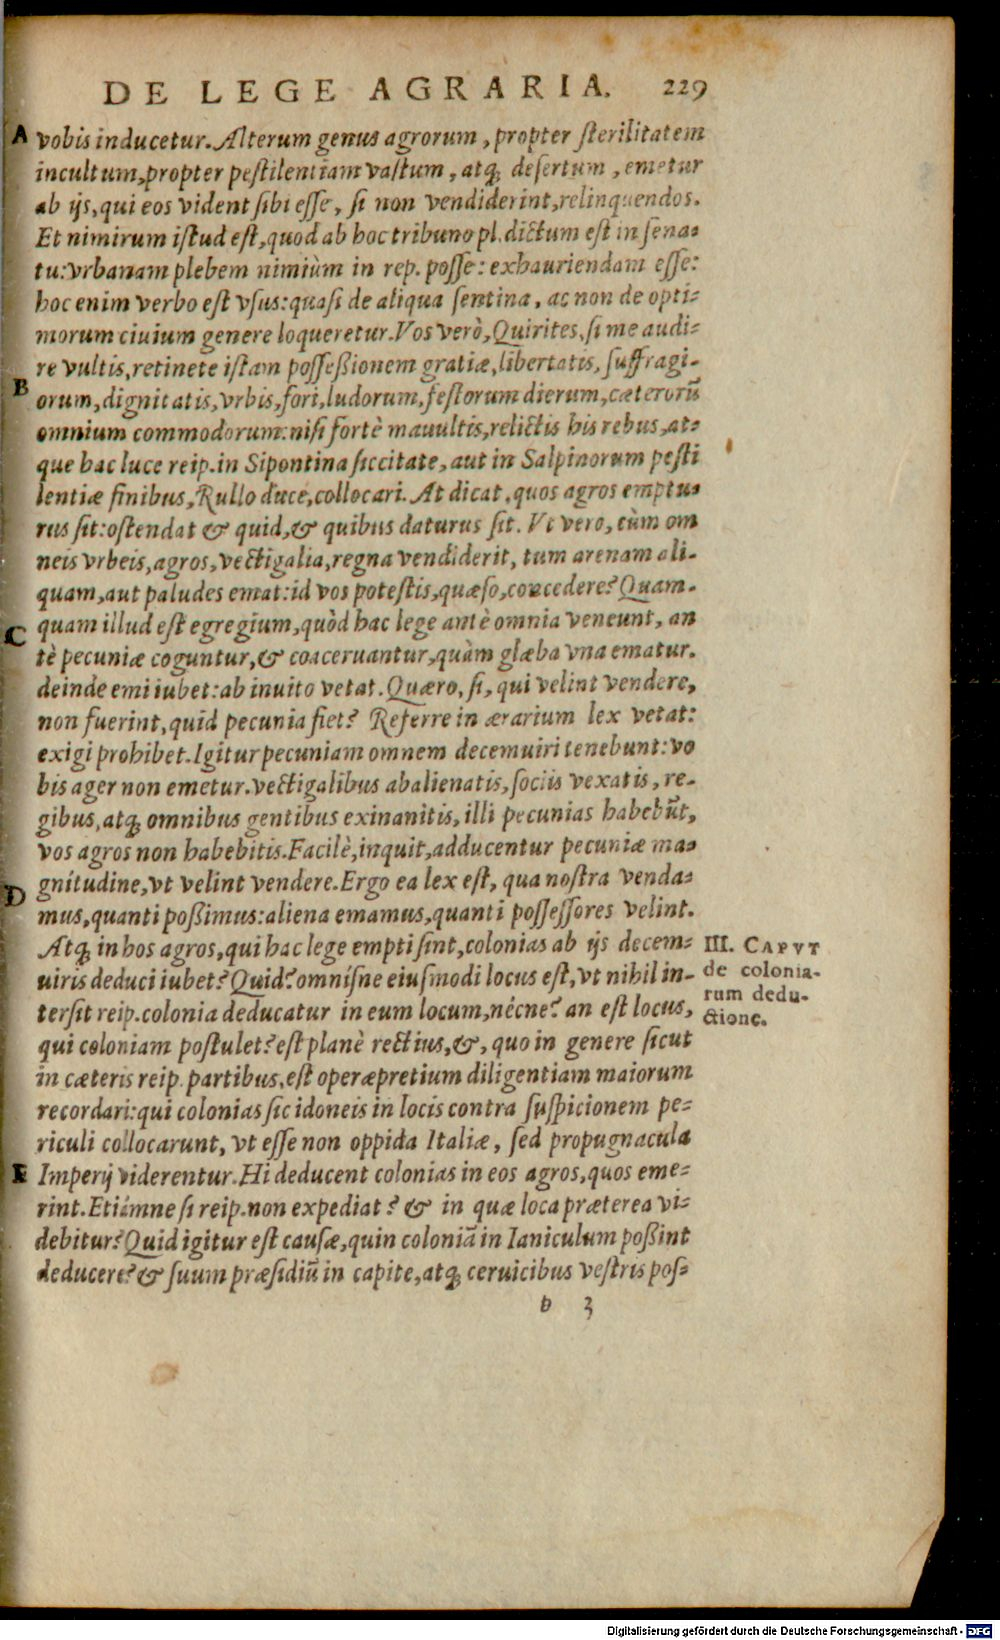 DE LEGE AGRARIA. 229
A vobis inducetur. Alterum genus agrorum, propter ſterilitatem
incultum, propter peſtilentiam vaſtum, atq; deſertum, emetur
ab ijs, qui eos vident ſibi eſſe, ſi non vendiderint, relinquendos.
Et nimirum iſtud eſt, quod ab hoc tribuno pl. dictum eſt in ſena-
tu: vrbanam plebem nimiùm in rep. poſſe: exhauriendam eſſe:
hoc enim verbo eſt vſus: quaſi de aliqua ſentina, ac non de opti-
morum ciuium genere loqueretur. Vos verò, Quirites, ſi me audi-
re vultis, retinete iſtam poſſeßionem gratiæ, libertatis, ſuffragi-
B orum, dignitatis, vrbis, fori, ludorum, feſtorum dierum, cæterorũ
omnium commodorum: niſi fortè mauultis, relictis his rebus, at-
que hac luce reip. in Sipontina ſiccitate, aut in Salpinorum peſti
lentiæ finibus, Rullo duce, collocari. At dicat, quos agros emptu-
rus ſit: oſtendat & quid, & quibus daturus ſit. Vt vero, cùm om
neis vrbeis, agros, vectigalia, regna vendiderit, tum arenam ali-
quam, aut paludes emat: id vos poteſtis, quæſo, concedere? Quam-
C quam illud eſt egregium, quòd hac lege antè omnia veneunt, an
tè pecuniæ coguntur, & coaceruantur, quàm glæba vna ematur.
deinde emi iubet: ab inuito vetat. Quæro, ſi, qui velint vendere,
non fuerint, quid pecunia fiet? Referre in ærarium lex vetat:
exigi prohibet. Igitur pecuniam omnem decemuiri tenebunt: vo
bis ager non emetur. vectigalibus abalienatis, ſociis vexatis, re-
gibus, atq; omnibus gentibus exinanitis, illi pecunias habebũt,
vos agros non habebitis. Facilè, inquit, adducentur pecuniæ ma-
D gnitudine, vt velint vendere. Ergo ea lex eſt, qua noſtra venda-
mus, quanti poßimus: aliena emamus, quanti poſſeſſores velint.
Atq; in hos agros, qui hac lege empti ſint, colonias ab ijs decem-
uiris deduci iubet? Quid? omníſne eiuſmodi locus eſt, vt nihil in-
terſit reip. colonia deducatur in eum locum, nécne? an eſt locus,
qui coloniam poſtulet? eſt planè rectius, &, quo in genere ſicut
in cæteris reip. partibus, eſt operæpretium diligentiam maiorum
recordari: qui colonias ſic idoneis in locis contra ſuſpicionem pe-
riculi collocarunt, vt eſſe non oppida Italiæ, ſed propugnacula
E Imperij viderentur. Hi deducent colonias in eos agros, quos eme-
rint. Etiámne ſi reip. non expediat? & in quæ loca præterea vi-
debitur? Quid igitur eſt cauſæ, quin coloniã in Ianiculum poßint
deducere? & ſuum præſidiũ in capite, atq; ceruicibus veſtris poſ-
b 3
III. CAPVT
de colonia-
rum dedu-
ctione.
Digitalisierung gefördert durch die Deutsche Forschungsgemeinschaft - DFG